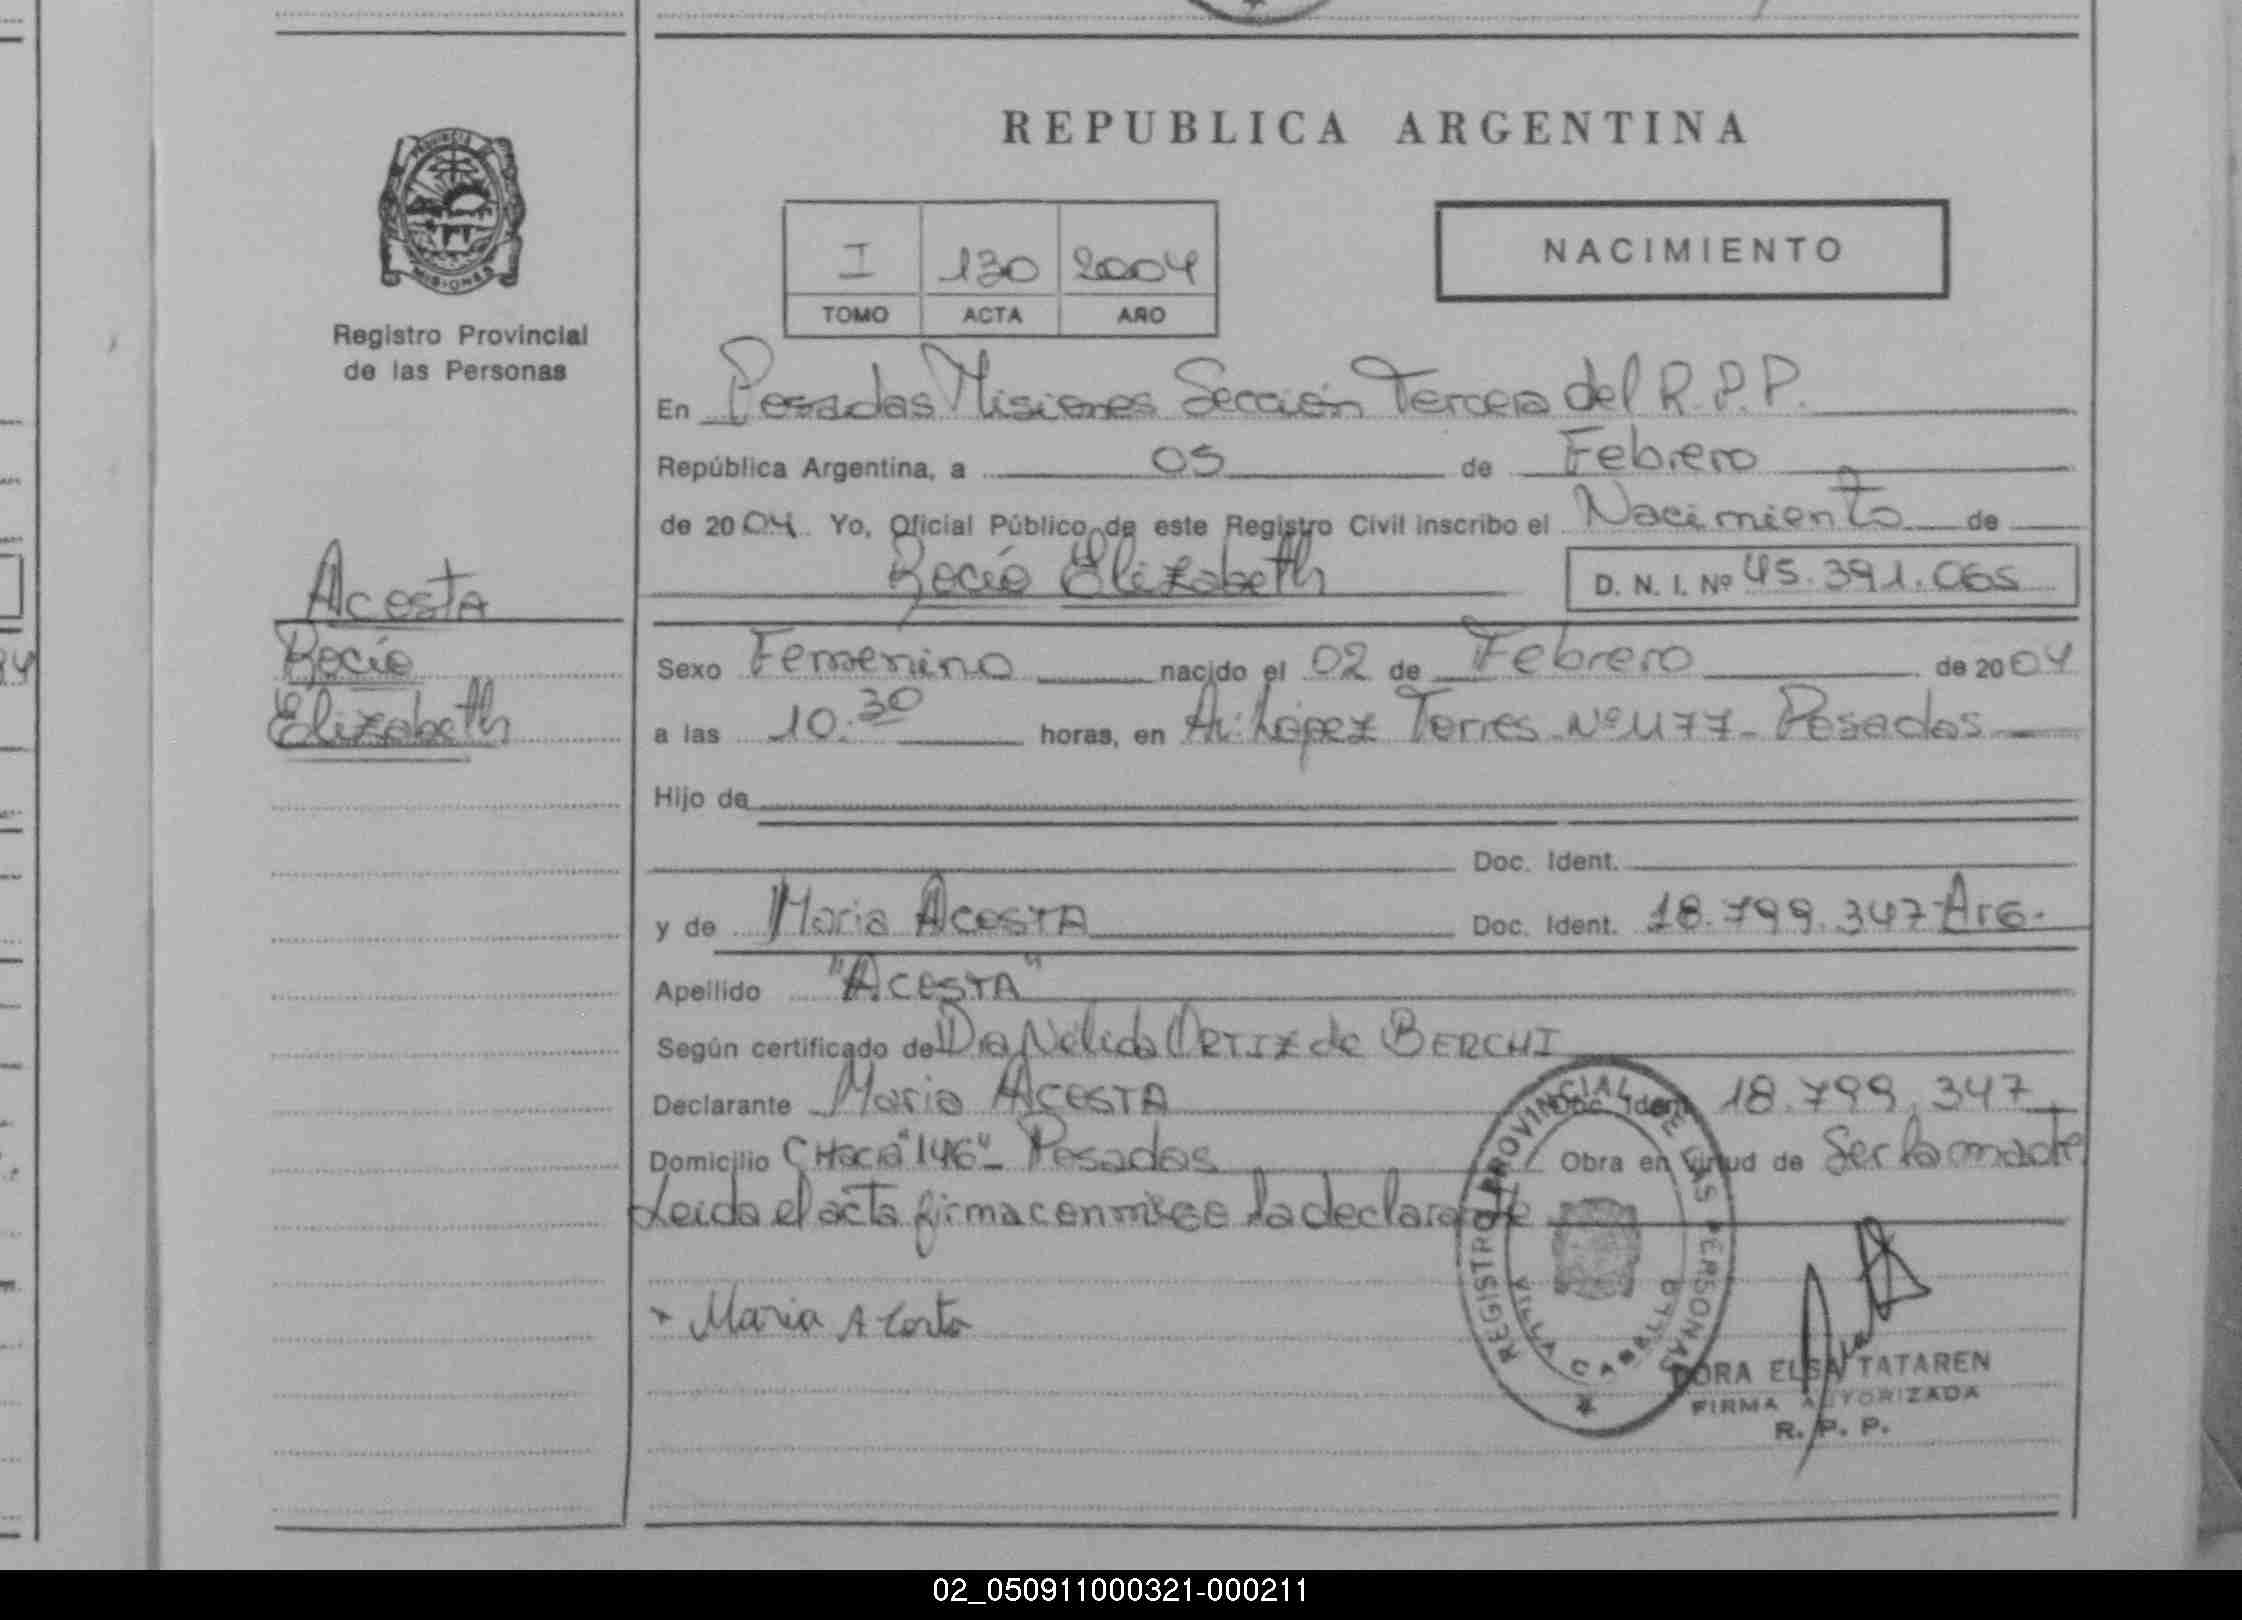 REPUBLICA ARGENTINA
PROVINCIA DE
MISIONES
Registro Provincial
de las Personas
I 130 2004
TOMO ACTA AÑO
NACIMIENTO
En Posadas Misiones Sección Tercera del R.P.P.
República Argentina, a 05 de Febrero
de 2004 Yo, Oficial Público de este Registro Civil inscribo el Nacimiento de
Rocío Elizabeth D. N. I. Nº 45.391.065
Acosta
Rocío
Elizabeth
Sexo Femenino nacido el 02 de Febrero de 2004
a las 10.30 horas, en Av. López Torres Nº 1177 - Posadas
Hijo de
Doc. Ident.
y de Maria Acosta Doc. Ident. 18.799.347 Arg.
Apellido "Acosta"
Según certificado de Dra Nélida Ortiz de BERCHI
Declarante Maria Acosta Doc. Ident. 18.799.347
Domicilio CHacra "146" - Posadas Obra en virtud de Ser la madre
Leida el acta firma conmigo la declarante
Maria Acosta
REGISTRO PROVINCIAL DE LAS PERSONAS
VILLA CABELLO
DORA ELSA TATAREN
FIRMA AUTORIZADA
R. P. P.
02_050911000321-000211